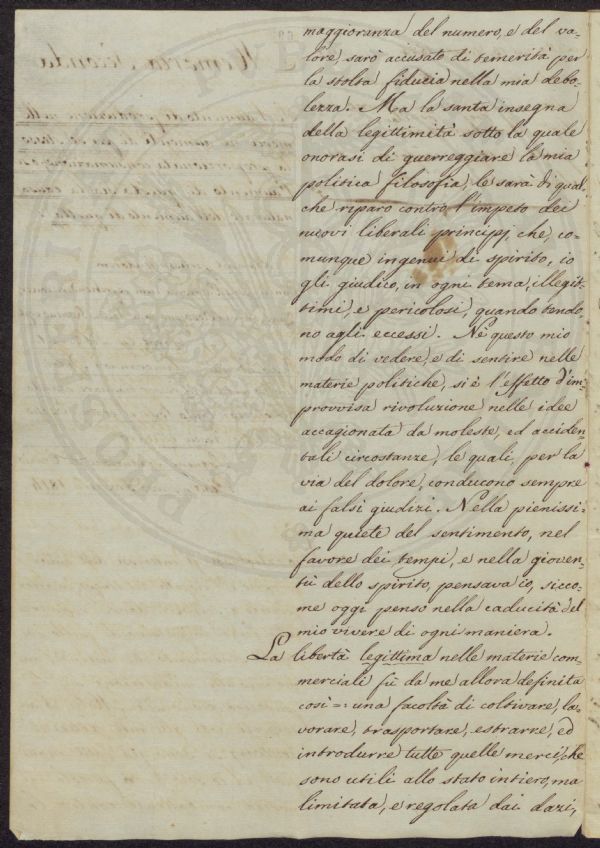 maggioranza del numero, e del va-
lore, sarò accusato di temerità per
la stolta fiducia nella mia debo-
lezza. Ma la santa insegna
della legittimità sotto la quale
onorasi di guerreggiare la mia
politica filosofia, le sarà di qual-
che riparo contro l'impeto dei
nuovi liberali principj, che, co-
munque ingenui di spirito, io
gli giudico, in ogni tema, illegit-
timi, e pericolosi, quando tendo-
no agli eccessi. Nè questo mio
modo di vedere, e di sentire nelle
materie politiche, si è l'effetto d'im-
provvisa rivoluzione nelle idee
accagionata da moleste, ed acciden-
tali circostanze, le quali, per la
via del dolore, conducono sempre
ai falsi giudizi. Nella pienissi-
ma quiete del sentimento, nel
favore dei tempi, e nella gioven-
tù dello spirito, pensava io, sicco-
me oggi penso nella caducità del
mio vivere di ogni maniera.
La libertà legittima nelle materie com-
merciali fù da me allora definita
così =: una facoltà di coltivare, la-
vorare, trasportare, estrarre, ed
introdurre tutte quelle merci, che
sono utili allo stato intiero, ma
limitata, e regolata dai dazi,